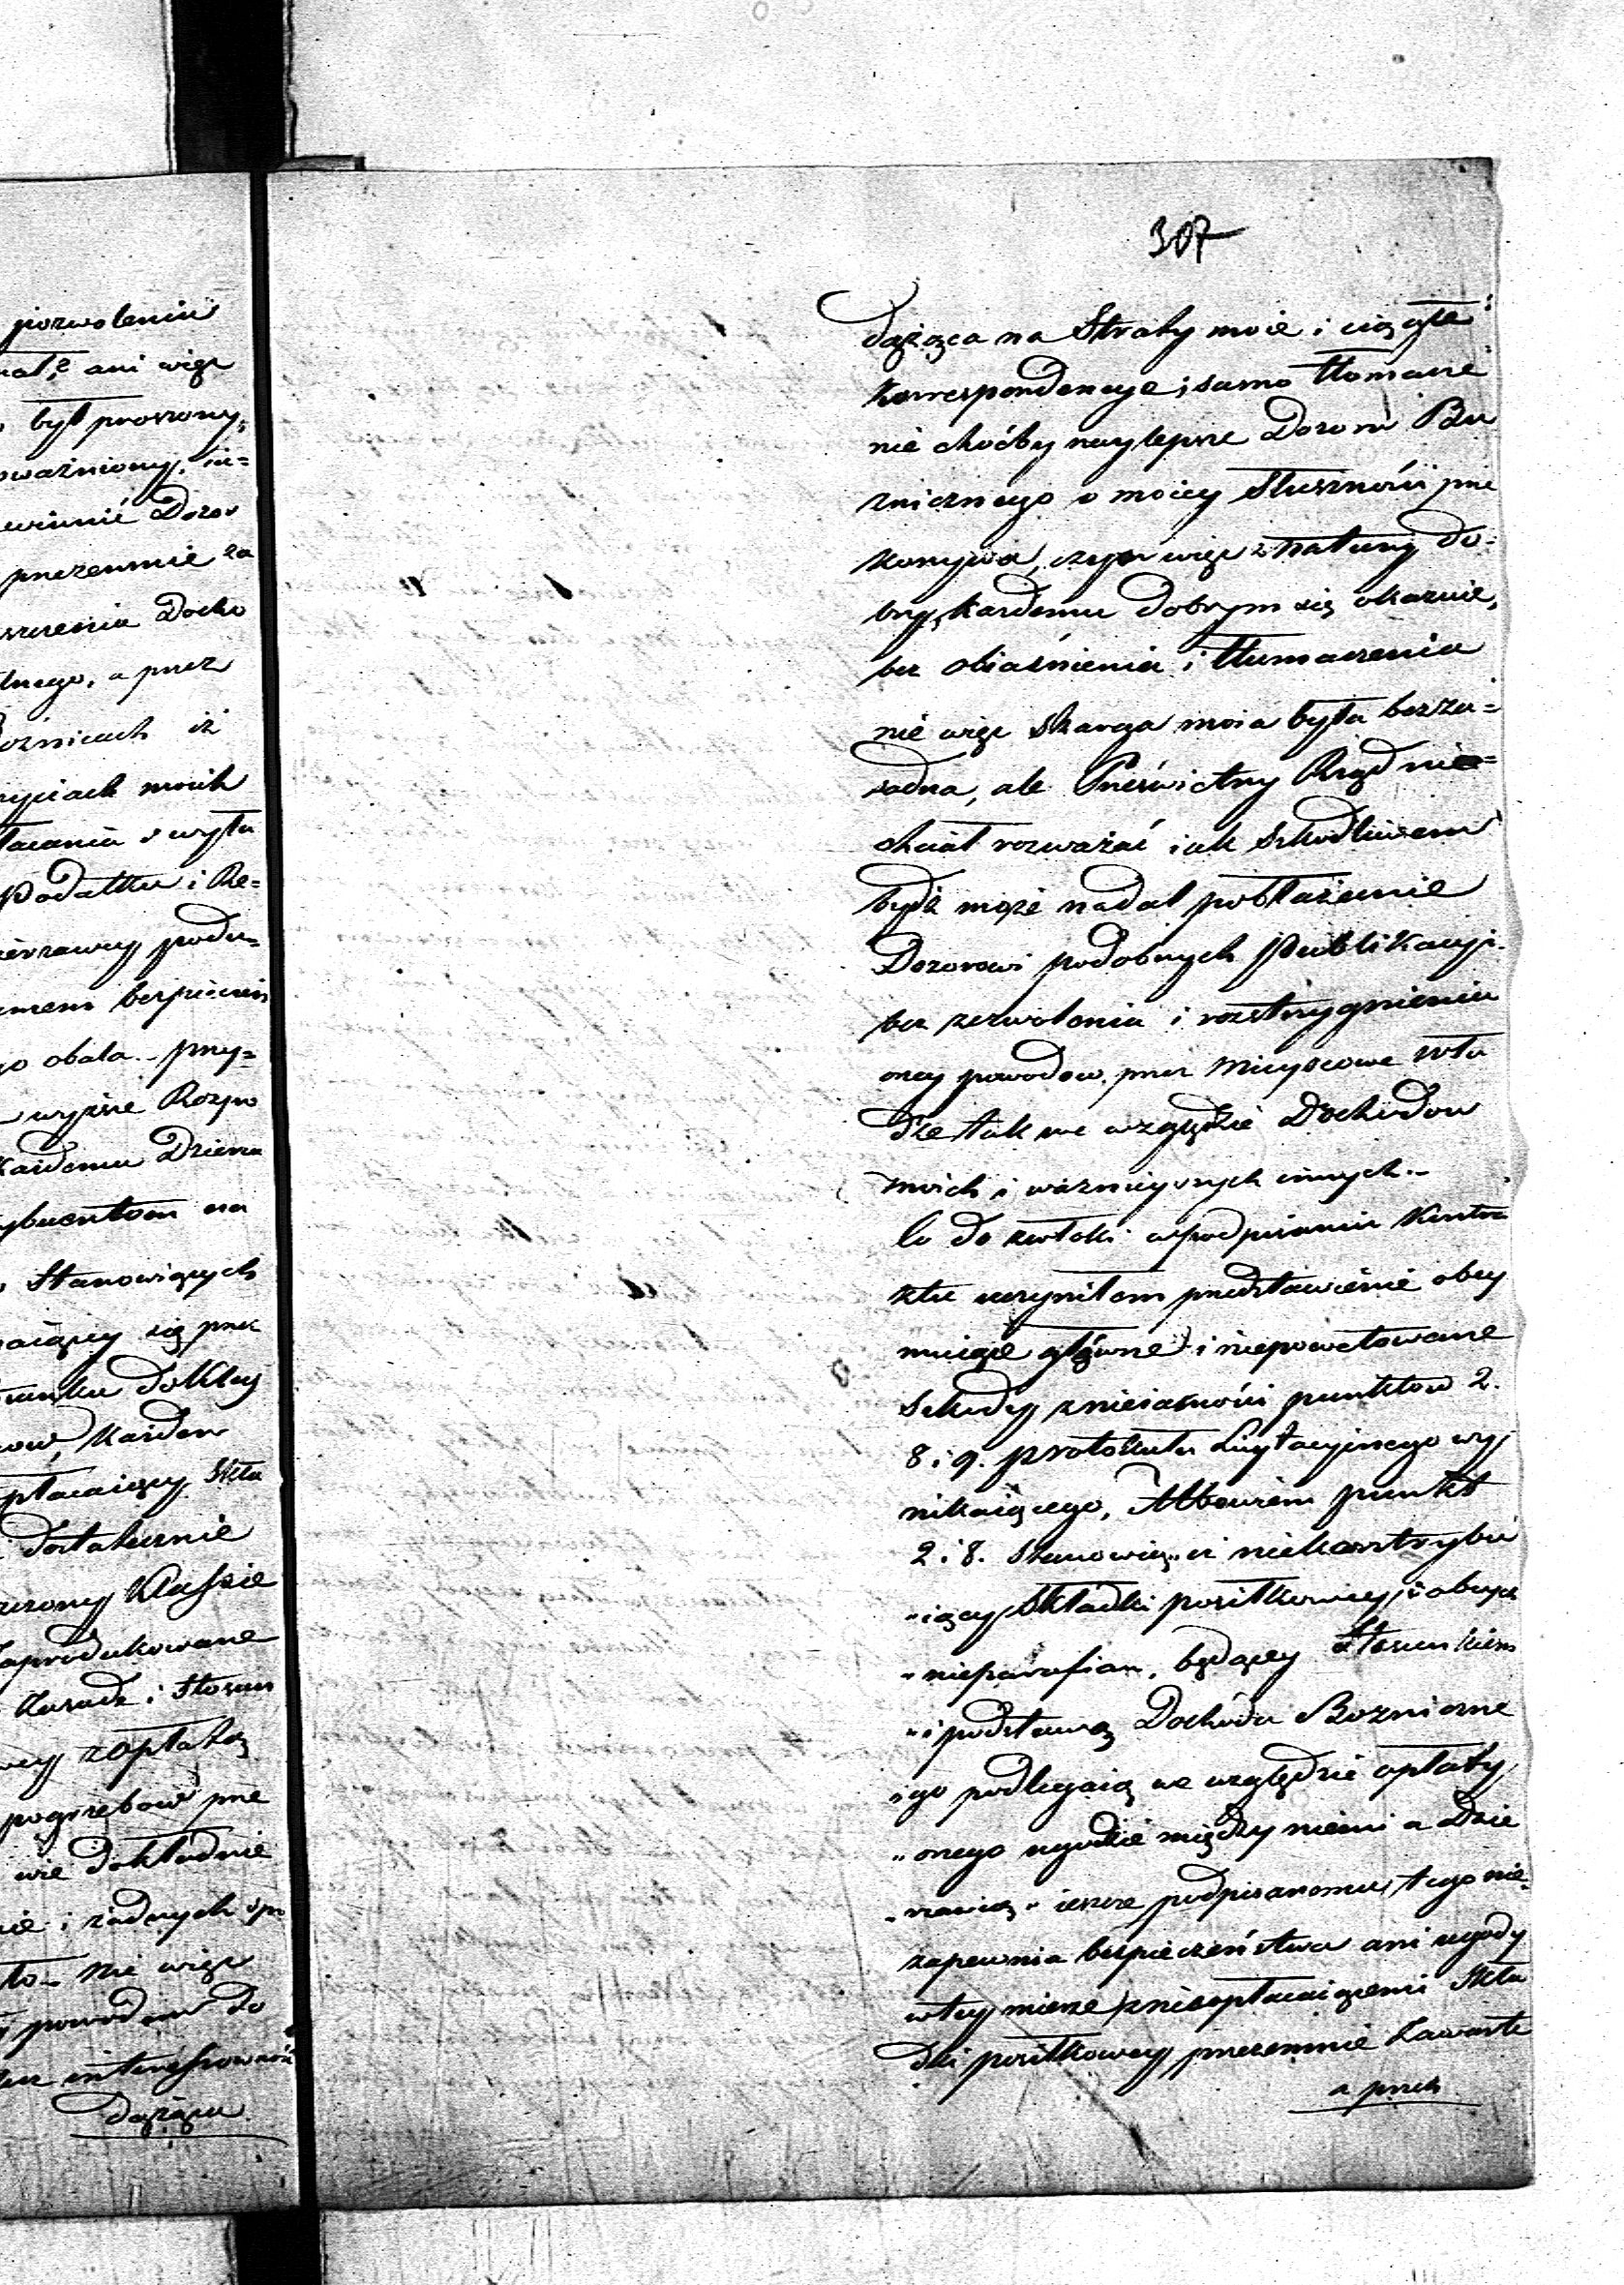 pozwoleniu
ani więc
był proszony,
ważniony, nie=
winnić Dozor
przezemnie za
szczenia Docho
lnego, a przez
Bożnicach iż
moich
Podatku i Re=
podu=
bezpieczeń
go obala. przy=
wyższe Rozpo
Każdemu Dzierza
na
Stanowiących
się przez
sunku do Klas
Każden
płacaiący Skła
dostatecznie
Klassie
aprodukowane
Zasade i Stosun
zopłatą
pogrzebow prze
wie dokładnie
i żadnych spo
to – nie więc
powodow do
interessowność
dążąca
307
dążąca na Straty moie i ciągłe
Korrespondencye, samo tłomacze
nie choćby naylepsze Dozoru Bu
żnicznego o moiey Słuszności prze
konywa, czyn więc z natury do=
bry, każdemu dobrym się okazuie,
bez obiaśnienia i tłumaczenia
nie więc Skarga moia była bezza=
sadna, ale Prześwietny Rząd nie=
chciał rozważać iak Szkodliwem
bydź może nadal pobłażanie
Dozorowi podobnych Publikacyi
bez zezwolenia i rozstrzygnienia
oney powodow, przez Mieyscowe Wła
dze tak we względzie Dochodow
moich i ważnieyszych innych. –
Co do zwłoki w podpisaniu Kontra
ktu uczyniłem przedstawienie obey
muiące główne i niepowetowane
Szkody z nieiasności punktow 2.
8 i 9. protokułu Licytacyjnego wy
nikaiącego, Albowiem punkt
2 i 8. Stanowią „iż niekontrybu
„iący Składki posiłkowey i obcych
„nieparafian, będącey Stosunkiem
„i podstawą Dochodu Bożniczne
„go podlegaią we względzie opłaty
„onego ugodzie między niemi a Dzie
„rzawcą" ieszcze podpisanemu tego nie=
zapewnia bezpieczeństwa ani ugody
w tey mierze z nieopłacaiącemi Skła
dki posiłkowey przezemnie Zawarte
a przez